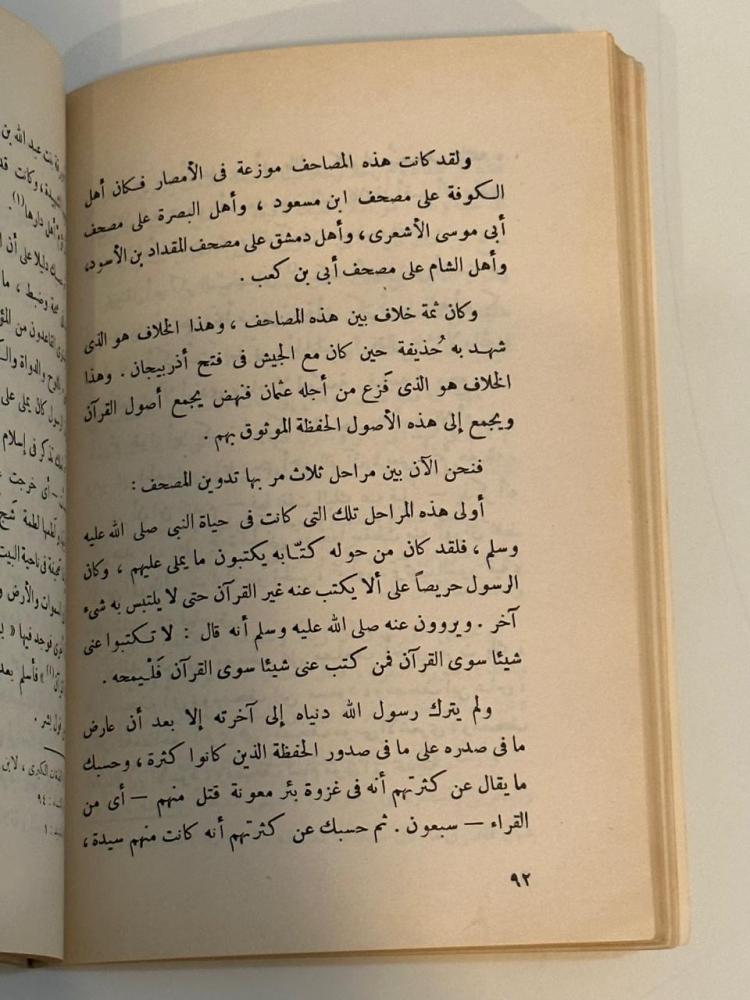 ولقد كانت هذه المصاحف موزعة فى الأمصار فكان أهل
الكوفة على مصحف ابن مسعود ، وأهل البصرة على مصحف
أبى موسى الأشعرى، وأهل دمشق على مصحف المقداد بن الأسود،
وأهل الشام على مصحف أبى بن كعب .
وكان ثمة خلاف بين هذه المصاحف ، وهذا الخلاف هو الذى
شهد به حُذيفة حين كان مع الجيش فى فتح أذربيجان . وهذا
الخلاف هو الذى فَزع من أجله عثمان فنهض يجمع أصول القرآن
ويجمع إلى هذه الأصول الحفظة الموثوق بهم .
فنحن الآن بين مراحل ثلاث مر بها تدوين المصحف :
أولى هذه المراحل تلك التى كانت فى حياة النبى صلى الله عليه
وسلم ، فلقد كان من حوله كتّابه يكتبون ما يملى عليهم ، وكان
الرسول حريصاً على ألا يكتب عنه غير القرآن حتى لا يلتبس به شىء
آخر . ويروون عنه صلى الله عليه وسلم أنه قال : لا تكتبوا عنى
شيئا سوى القرآن فمن كتب عنى شيئا سوى القرآن فَلْيمحه .
ولم يترك رسول الله دنياه إلى آخرته إلا بعد أن عارض
ما فى صدره على ما فى صدور الحفظة الذين كانوا كثرة ، وحسبك
ما يقال عن كثرتهم أنه فى غزوة بئر معونة قتل منهم — أى من
القراء — سبعون . ثم حسبك عن كثرتهم أنه كانت منهم سيدة ،
٩٢